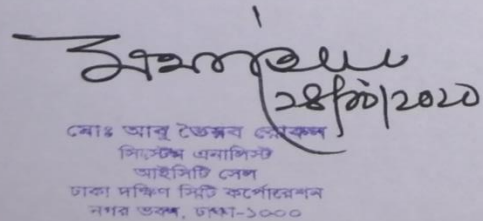 28/10/2020
মোঃ আবু তৈয়ব রোকন
সিস্টেম এনালিস্ট
আইসিটি সেল
ঢাকা দক্ষিণ সিটি কর্পোরেশন
নগর ভবন, ঢাকা-১০০০